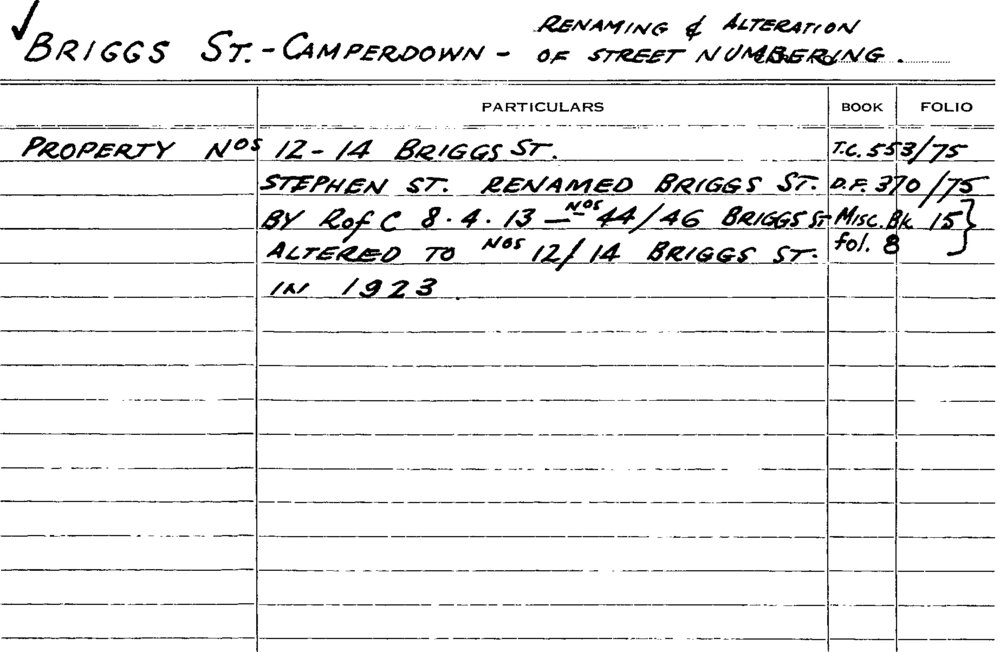 ✓ BRIGGS ST. - CAMPERDOWN - RENAMING & ALTERATION
OF STREET NUMBERING.
PARTICULARS BOOK FOLIO
PROPERTY Nos 12-14 BRIGGS ST. T.C. 553/75
STEPHEN ST. RENAMED BRIGGS ST. D.F. 370/75
BY R of C 8.4.13 — Nos 44/46 BRIGGS ST Misc. Bk. 15}
ALTERED TO Nos 12/14 BRIGGS ST. fol. 8
IN 1923